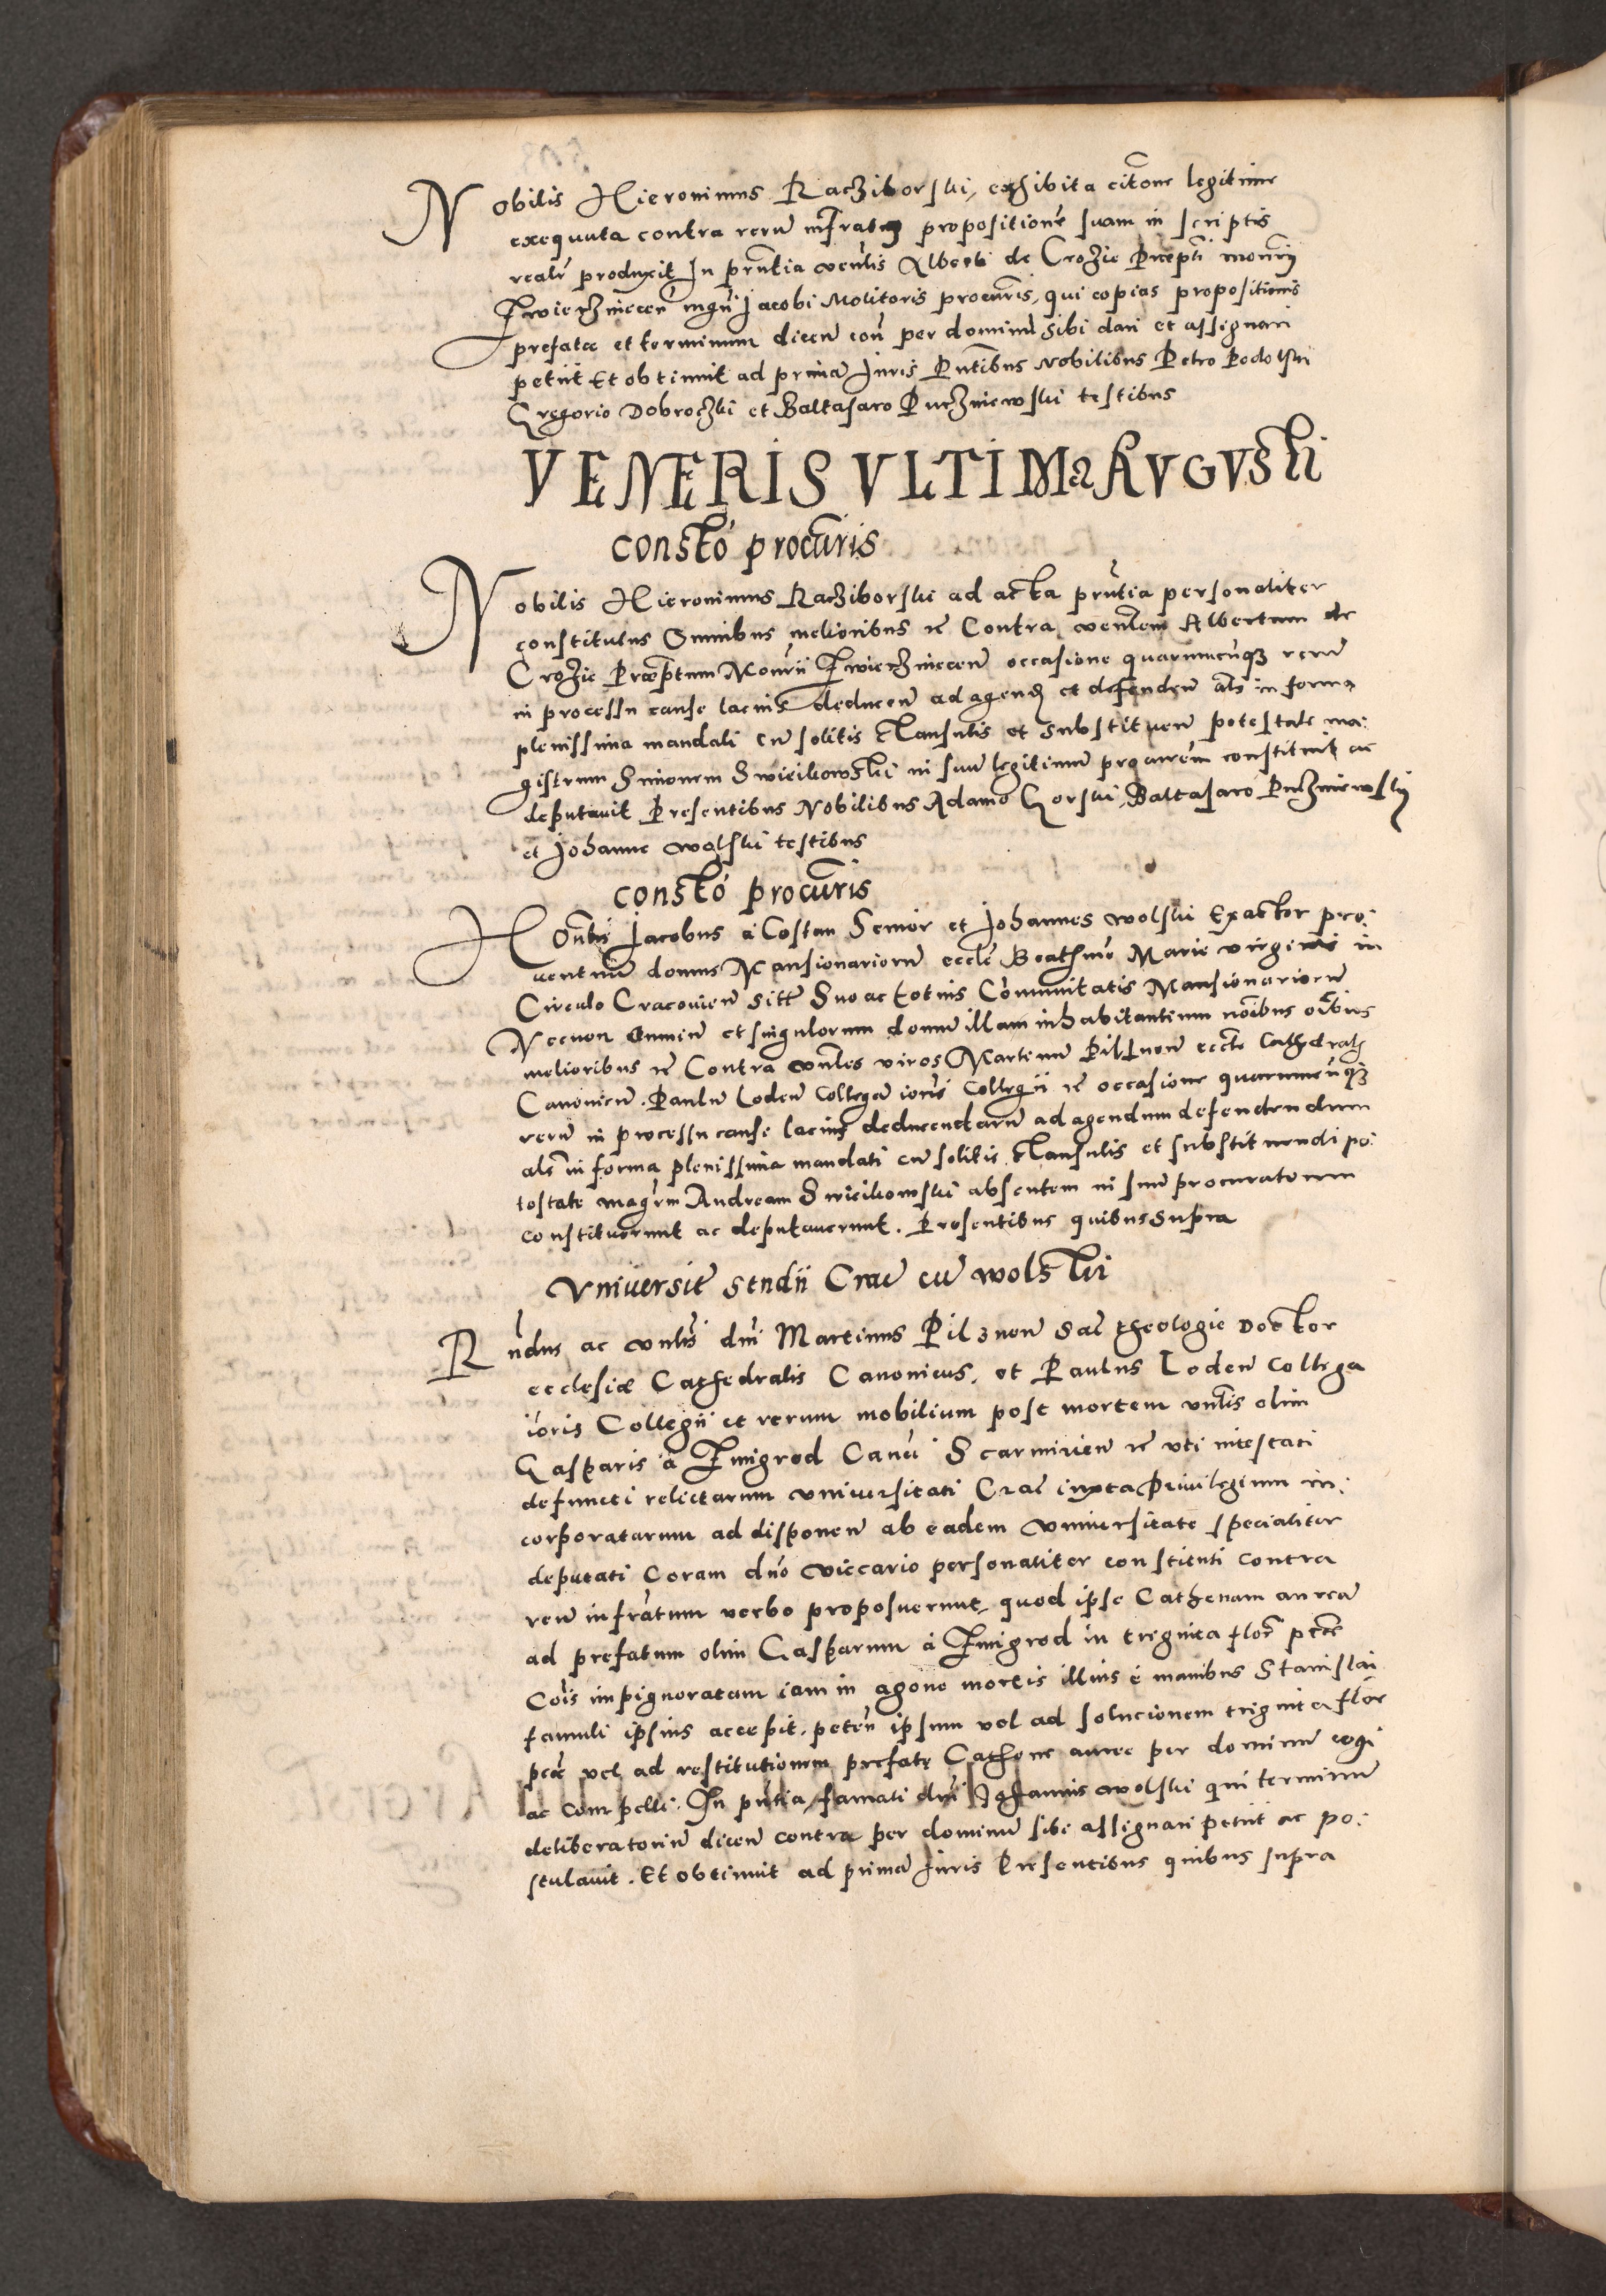 Nobilis Hieronimus Racziborski, exhibita citone legitime
exequuta contra reum infratum propositione suam in scriptis
realr produxit In prntia venlis Alberti de Crozie Prepti monrij
Zwierzinecen mgri Jacobi Molitoris procuris, qui copias propositionis
prefatae et terminum dicen con per dominu sibi dari et assignari
petiit Et obtinuit ad prima Juris Pntibus Nobilibus Petro Podolski
Gregorio Dobroczki et Baltasaro Puczniewski testibus
VENERIS VLTIMa AVGVSti
consto procuris
Nobilis Hieronimus Racziborski ad acta prntia personaliter
constitutus Omnibus melioribus re Contra venlem Albertum de
Crozie Praeptum Monrii Zwierzinecen occasione quarumcunqz reru
in processu cause lacius deducen ad agend et defenden als in forma
plenissima mandati cu solitis clausulis et substituen potestate ma:
gistrum Simonem Swieikowski in suu legitimu procurem constituit ac
deputauit Presentibus Nobilibus Adamo Gorski, Baltasaro Puczniewskij
et Johanne wolski testibus
consto procuris
Honbij Jacobus a Costan Senior et Johannes wolski Exactor pro:
uentuu domus Mansionarioru eccle Beatissime Marie virginis in
Circulo Cracouien sitt Suo ac totius Comunitatis Mansionarioru
Necnon Omniu et singulorum domu illam inhabitantium noibus oibus
melioribus re Contra vnles viros Martinu Pilznen eccle Cathedralis
Canonicu. Paulu Loden Collega ioris Collegii re occasione quarumcunqz
reru in processu cause lacius deducendaru ad agendum defendendum
als in forma plenissima mandati cu solitis clausulis et substituendi po:
testate magrm Andream Swieikowski absentem in suu procuratorem
constituerunt ac deputauerunt. Presentibus quibus supra
Vniuersit studii Crac cu wolski
Rndus ac vnlis dni Martinus Pilznen Sac theologie Doctor
ecclesiae Cathedralis Canonicus, et Paulus Loden Collega
ioris Collegii et rerum mobilium post mortem vnlis olim
Gasparis a Zmigrod Canci Scarmirien re vti intestati
defuncti relictarum vniuersitati Crac iuxta Priuilegium in:
corporatarum ad disponen ab eadem vniuersitate specialiter
deputati Coram dno viccario personaliter constituti contra
reu infratum verbo proposuerunt, quod ipse Cathenam aurea
ad prefatum olim Gasparum a Zmigrod in triginta flor pccie
Cois impignoratam iam in agone mortis illius e manibus Stanislai
famuli ipsius accepit. peten ipsum vel ad solucionem triginta flor
pcie vel ad restitutionem prefate Cathene auree per dominu cogi
ac compelli. In pntia famati dni Johannis wolski qui terminu
deliberatoriu dicen contra per dominu sibi assignari petiit ac po:
stulauit. Et obtinuit ad prima Juris Presentibus quibus supra